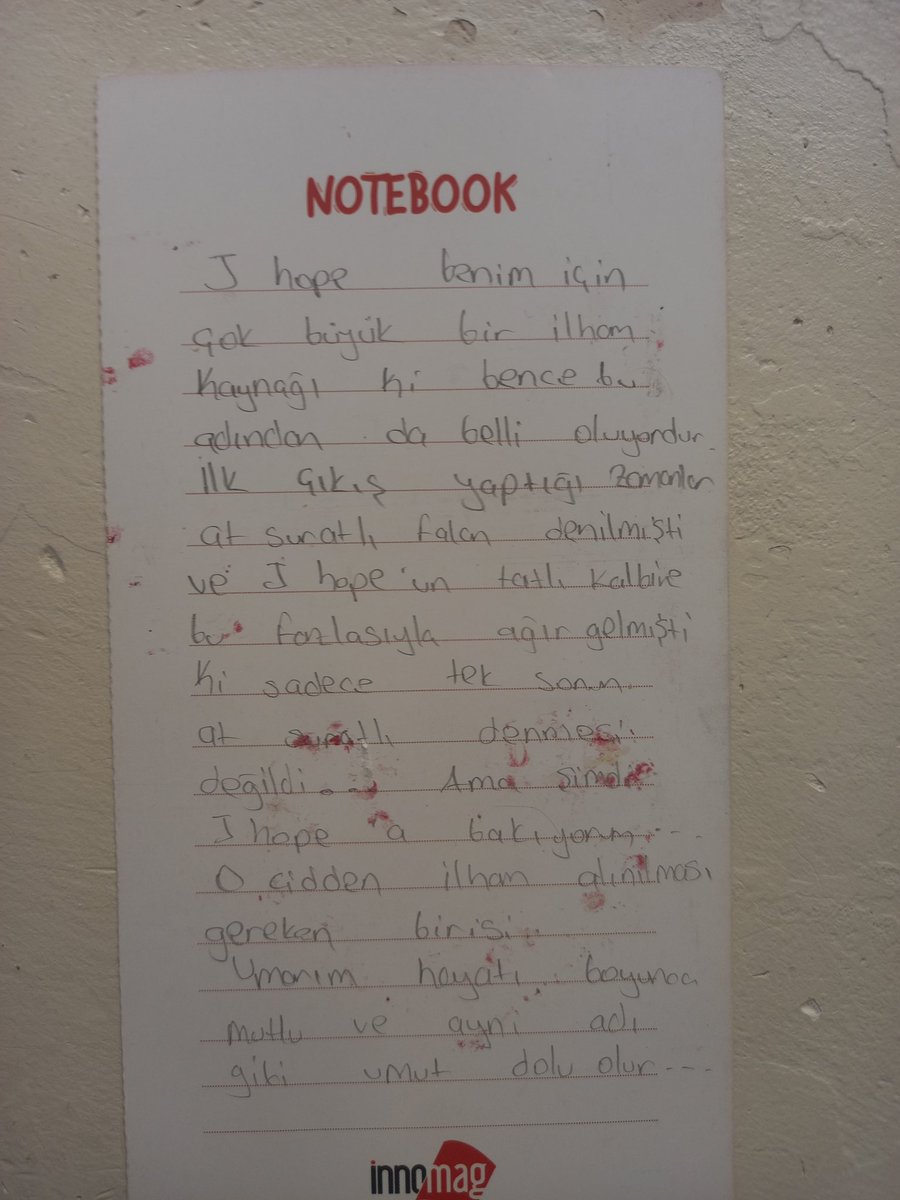 NOTEBOOK
J hope benim için
çok büyük bir ilham
kaynağı ki bence bu
adından da belli oluyordur
ilk çıkış yaptığı zamanlar
at suratlı falan denilmişti
ve J hope'un tatlı kalbine
bu fazlasıyla ağır gelmişti
ki sadece tek sorun
at suratlı denmesi
değildi... Ama şimdi
J hope'a bakıyorum...
O cidden ilham alınılması
gereken birisi..
Umarım hayatı boyunca
mutlu ve ayni adı
gibi umut dolu olur...
innomag